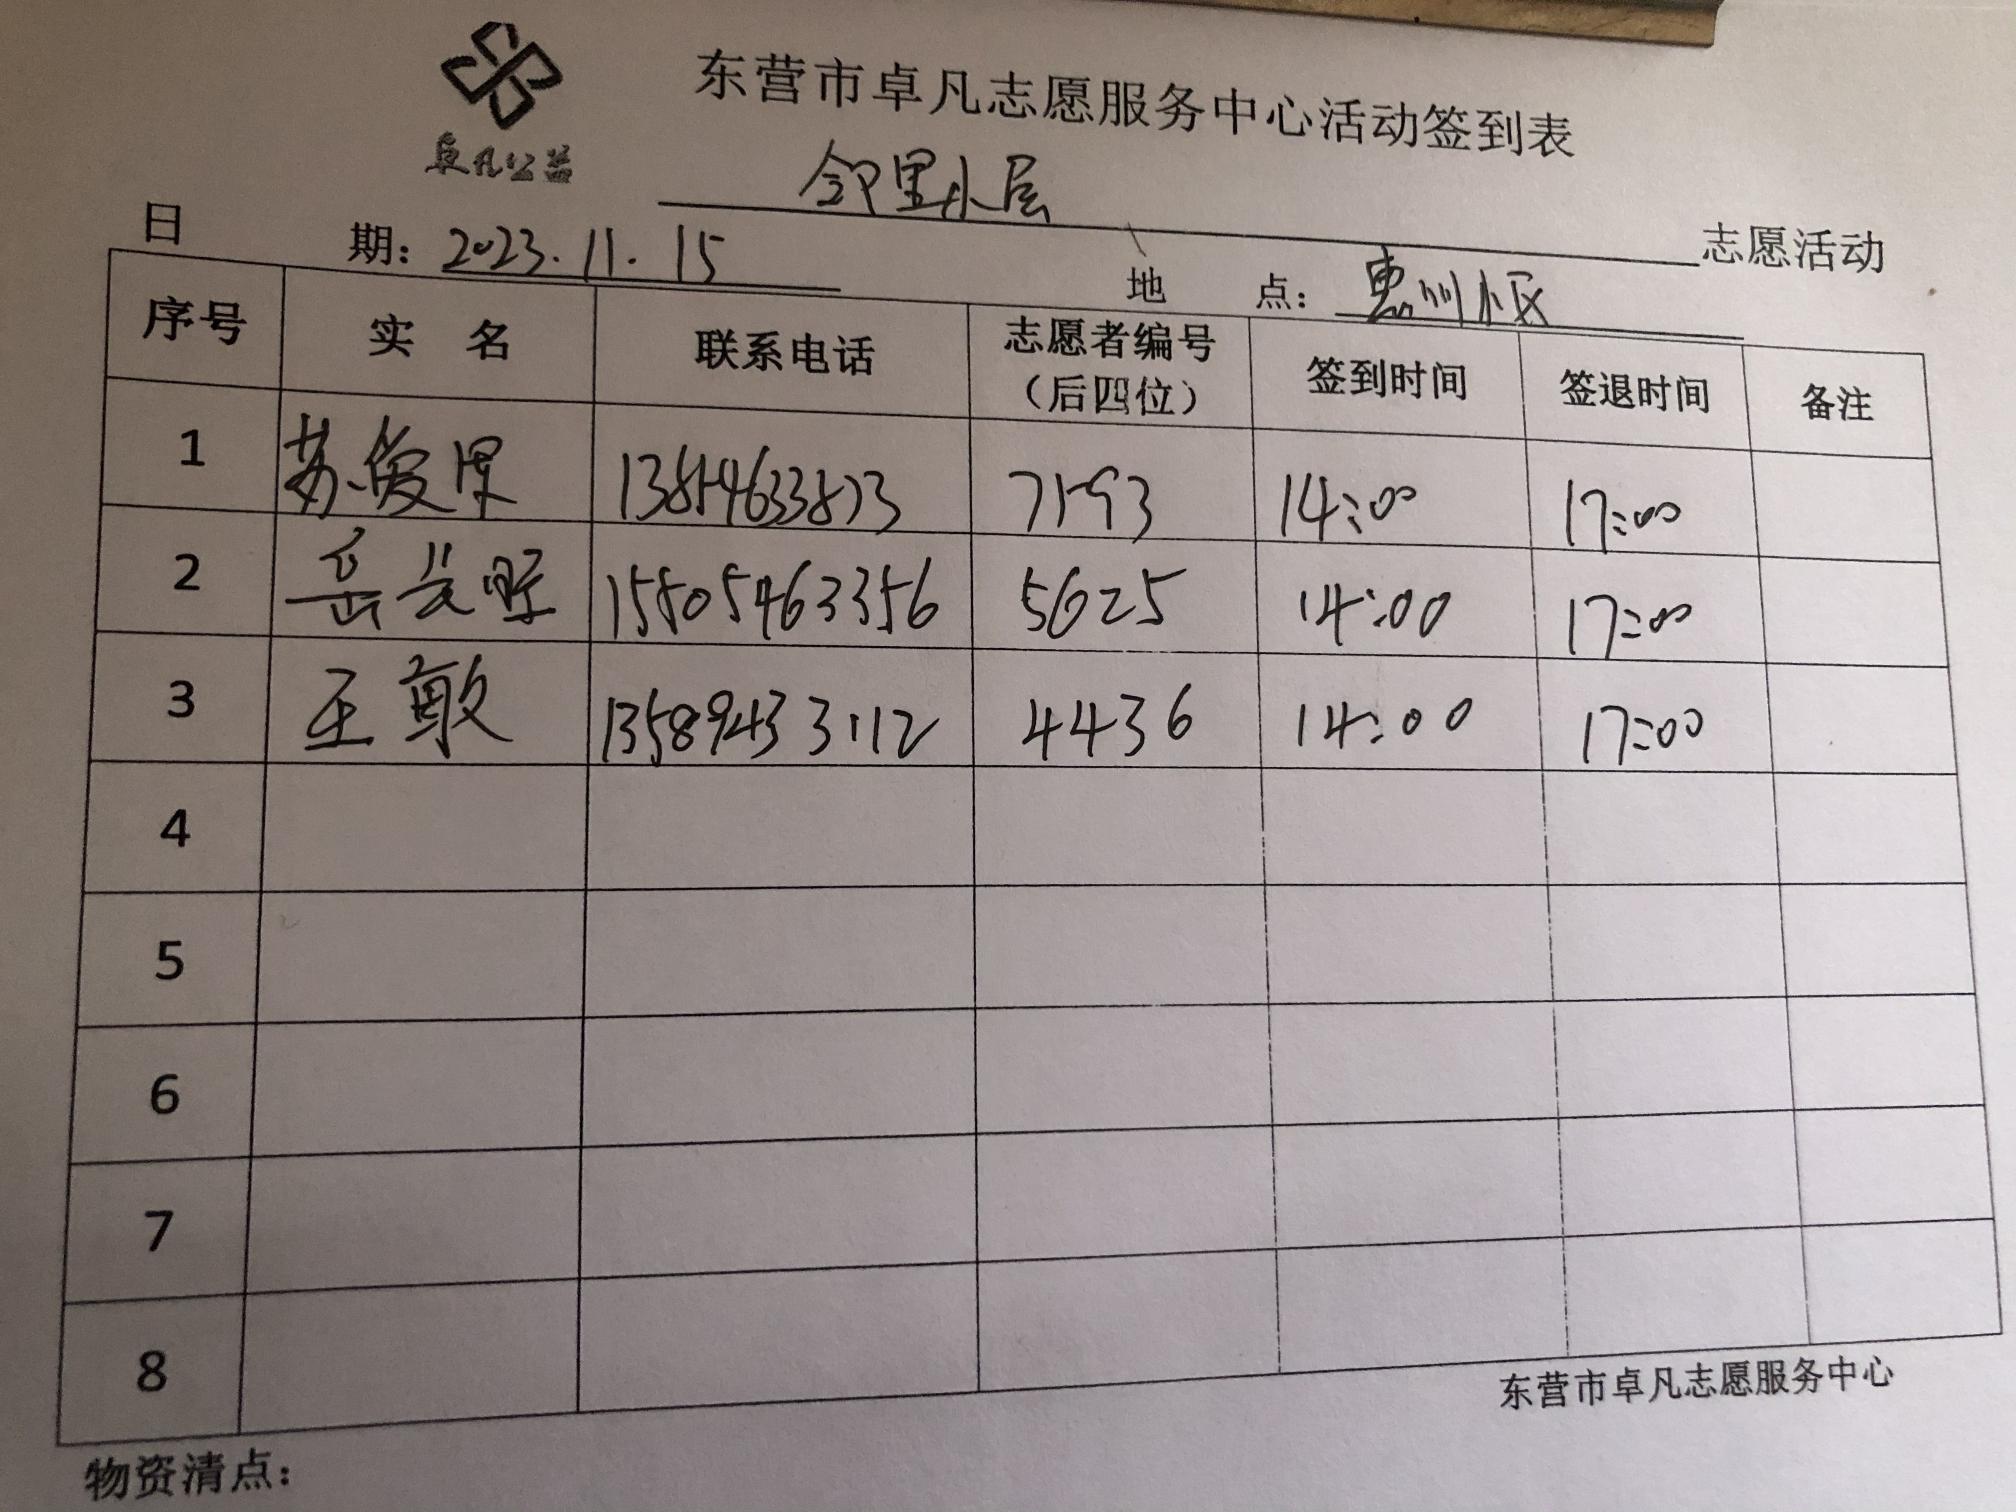 东营市卓凡志愿服务中心活动签到表
卓凡公益
邻里小屋 志愿活动
日 期: 2023.11.15 地 点: 惠州小区
序号 实 名 联系电话 志愿者编号（后四位） 签到时间 签退时间 备注
1 苏爱 7193 14:00 17:00
2 岳 15805463356 5625 14:00 17:00
3 王敏 13589433112 4436 14:00 17:00
4
5
6
7
8
东营市卓凡志愿服务中心
物资清点: